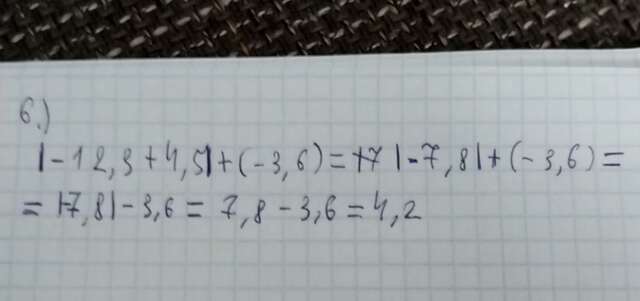 6.)
|-12,3+4,5|+(-3,6)=|-7,8|+(-3,6)=
=|-7,8|-3,6=7,8-3,6=4,2